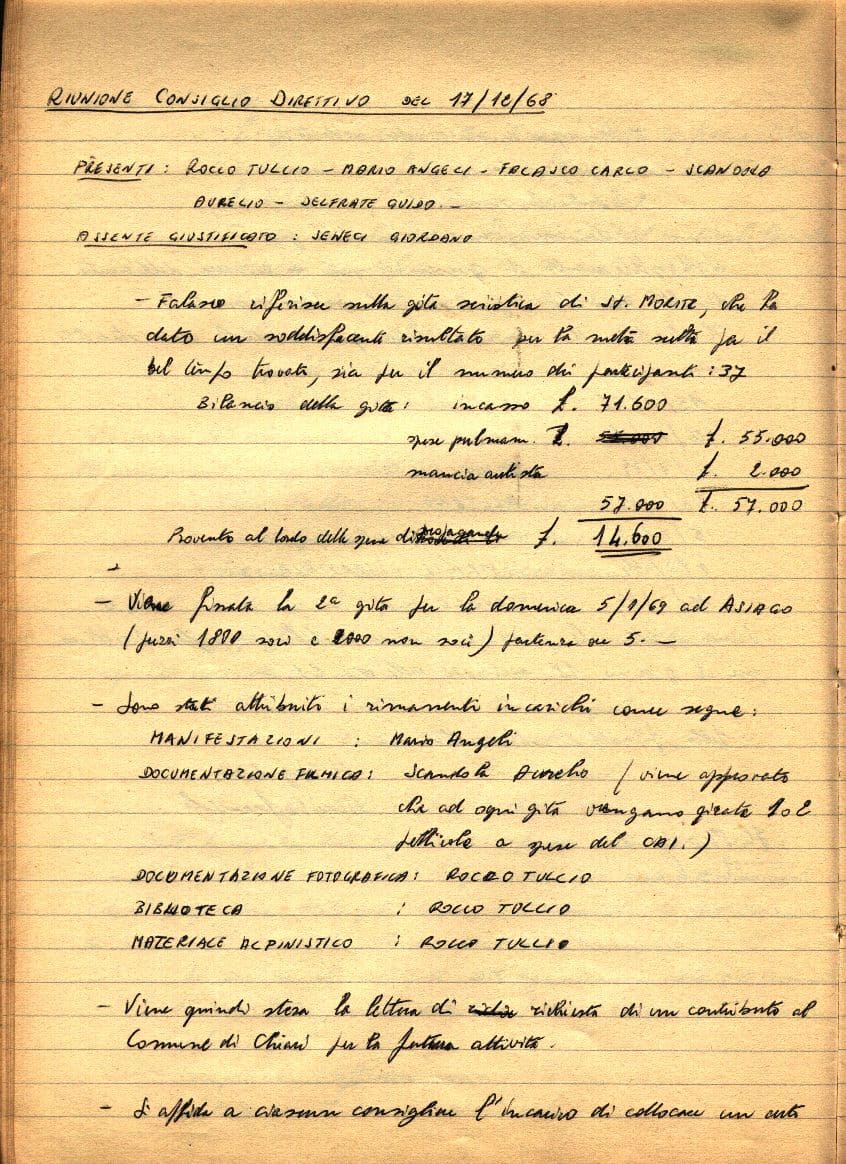 RIUNIONE CONSIGLIO DIRETTIVO DEL 17/12/68
PRESENTI : ROCCO TULLIO - MARIO ANGELI - FALASCO CARLO - SCANDOLA
AURELIO - DELFRATE GUIDO. -
ASSENTE GIUSTIFICATO : SENECI GIORDANO
- Falasco riferisce sulla gita sciistica di St. MORITZ, che ha
dato un soddisfacente risultato per la metà scelta per il
bel tempo trovato, sia per il numero dei partecipanti : 37
Bilancio della gita : incasso £. 71.600
spese pulmann. £. 55.000 £. 55.000
mancia autista £. 2.000
57.000 £. 57.000
Provento al lordo delle spese di propaganda £. 14.600
- Viene fissata la 2ª gita per la domenica 5/1/69 ad ASIAGO
(prezzi 1800 soci e 2000 non soci) partenza ore 5. -
- Sono stati attribuito i rimanenti incarichi come segue :
MANIFESTAZIONI : Mario Angeli
DOCUMENTAZIONE FILMICA : Scandola Aurelio (viene approvato
che ad ogni gita vengano girate 1 o 2
pellicole a spese del CAI.)
DOCUMENTAZIONE FOTOGRAFICA : ROCCO TULLIO
BIBLIOTECA : ROCCO TULLIO
MATERIALE ALPINISTICO : ROCCO TULLIO
- Viene quindi stesa la lettera di richiesta di un contributo al
Comune di Chiari per la futura attività.
- Si affida a ciascun consigliere l'incarico di collocare un certo